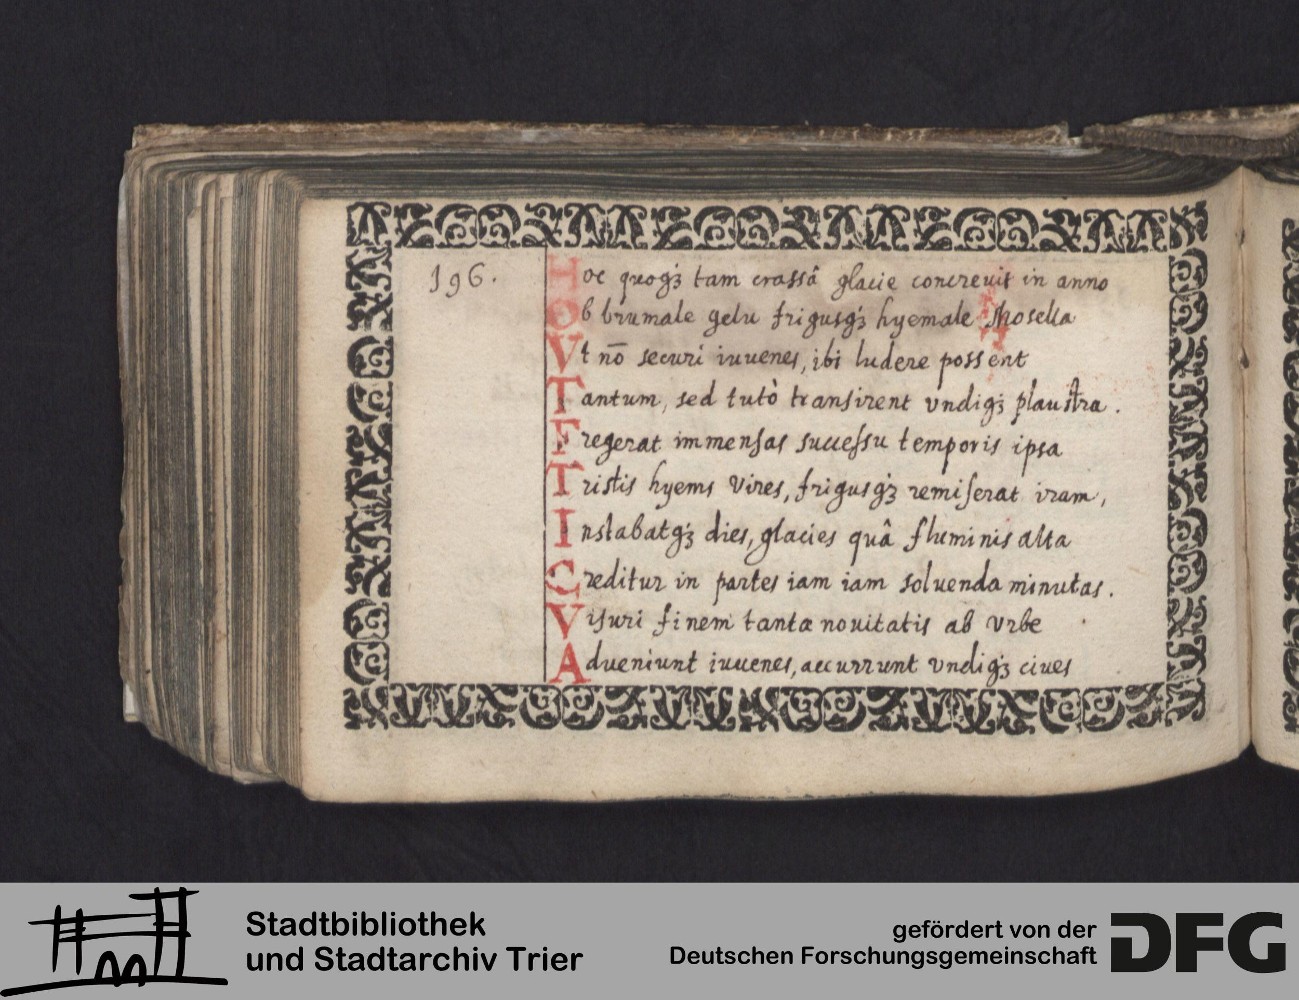 196.
Hoc quoqꝫ tam crassâ glacie concreuit in anno
Ob brumale gelu frigusqꝫ hyemale Mosella
Vt nō securi iuuenes, ibi ludere possent
Tantum, sed tutò transirent vndiqꝫ plaustra.
Fregerat immensas successu temporis ipsa
Tristis hyems vires, frigusqꝫ remiserat iram,
Instabatqꝫ dies, glacies quâ fluminis alta
Creditur in partes iam iam soluenda minutas.
Visuri finem tantæ nouitatis ab vrbe
Adueniunt iuuenes, accurrunt vndiqꝫ ciues
Stadtbibliothek
und Stadtarchiv Trier
gefördert von der
Deutschen Forschungsgemeinschaft
DFG